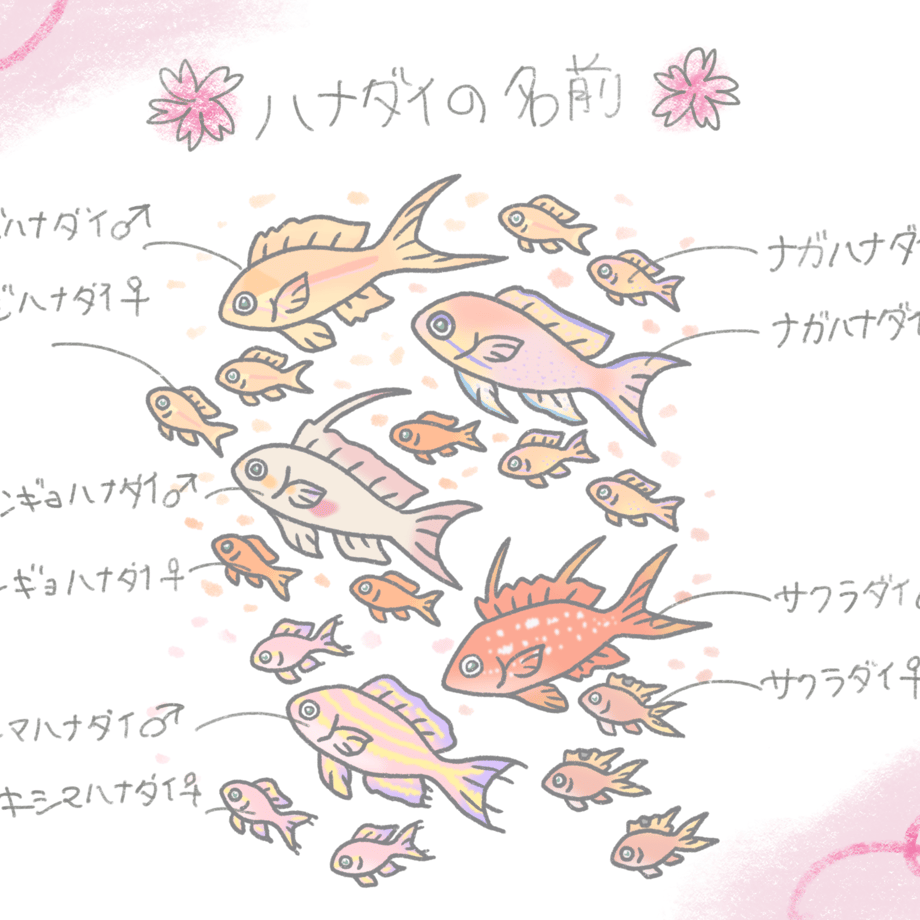 ハナダイの名前
ハナダイ♂
ハナダイ♀
ナガハナダ
ナガハナダイ
ンギョハナダイ♂
ギョハナダイ♀
サクラダイ
サクラダイ♀
マハナダイ♂
キシマハナダイ♀